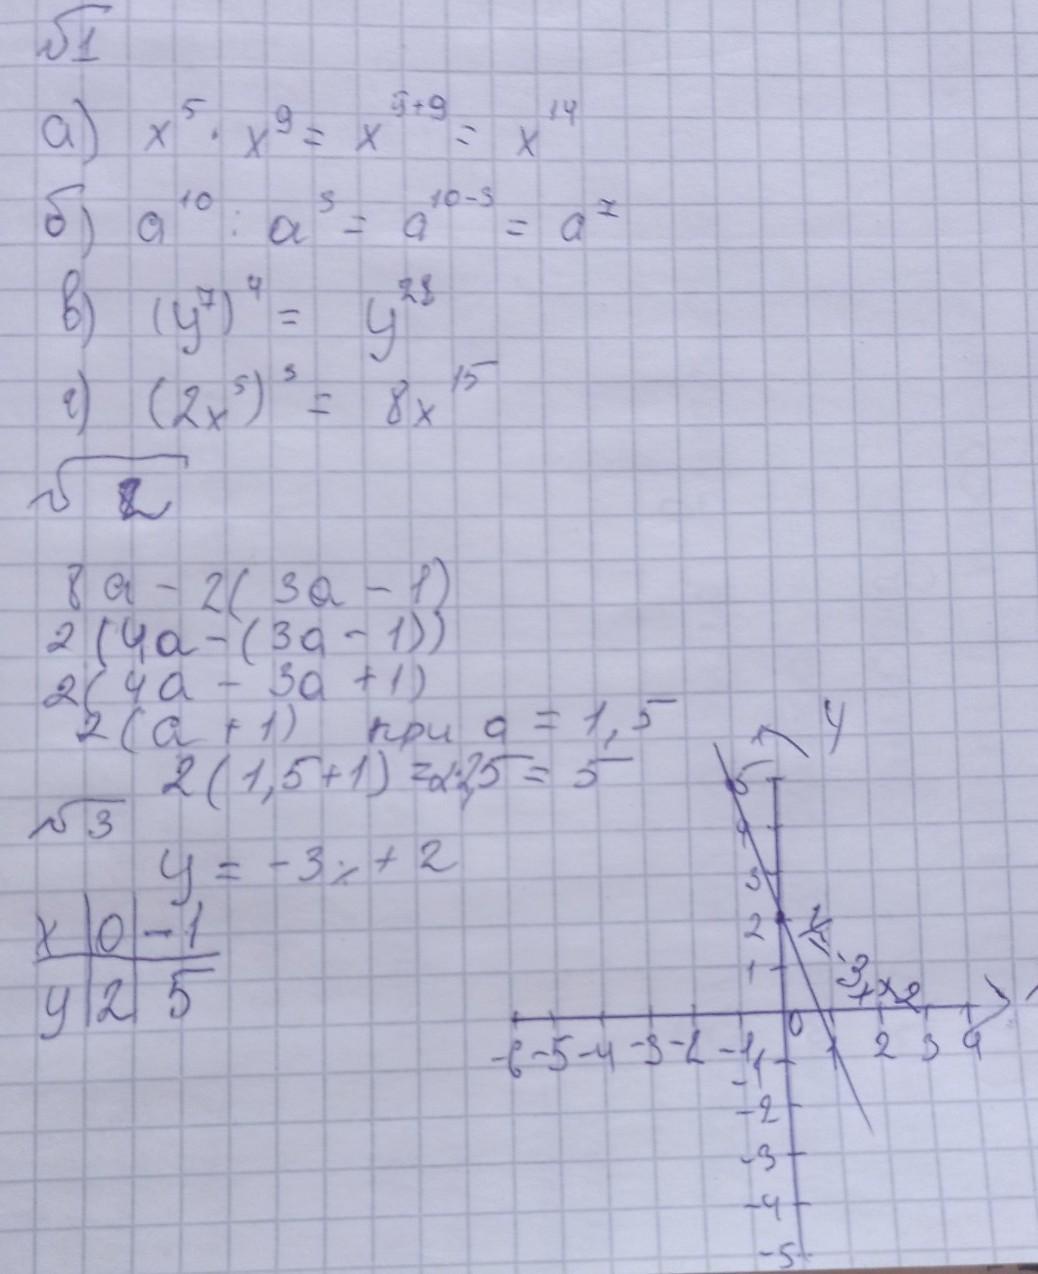 №1
а) x⁵ · x⁹ = x⁵⁺⁹ = x¹⁴
б) a¹⁰ : a³ = a¹⁰⁻³ = a⁷
в) (y⁷)⁴ = y²⁸
г) (2x⁵)³ = 8x¹⁵
№2
8a - 2(3a - 1)
2(4a - (3a - 1))
2(4a - 3a + 1)
2(a + 1) при a = 1,5
2(1,5 + 1) = 2·2,5 = 5
№3
y = -3x + 2
x | 0 | -1
y | 2 | 5
y
5
4
3
2
1
y = -3x + 2
-6 -5 -4 -3 -2 -1 0 1 2 3 4
-1
-2
-3
-4
-5